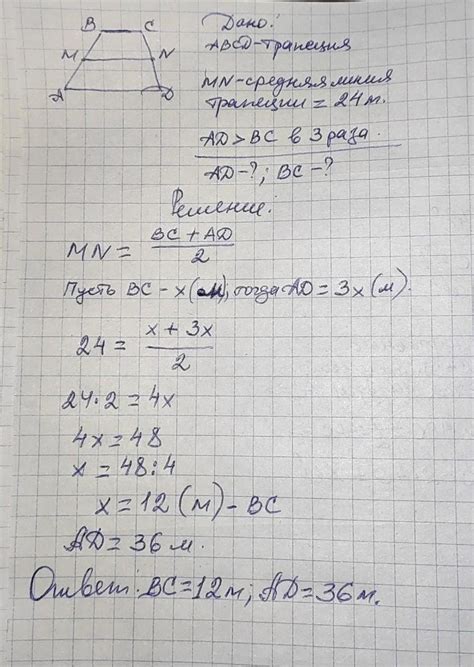 B C
M N
A D
Дано:
ABCD-трапеция
MN-средняя линия
трапеции = 24 м.
AD > BC в 3 раза.
AD-?; BC-?
Решение:
MN = BC + AD / 2
Пусть BC - x (м), тогда AD = 3x (м).
24 = x + 3x / 2
24·2 = 4x
4x = 48
x = 48:4
x = 12 (м) - BC
AD = 36 м.
Ответ: BC = 12 м; AD = 36 м.